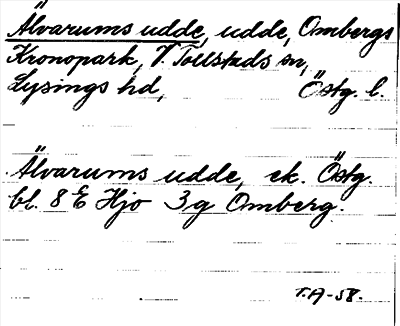 Älvarums udde, udde, Ombergs
Kronopark, V. Tollstads sn,
Lysings hd, Östg. l.
Älvarums udde, ek. Östg.
bl. 8 E Hjo 3g Omberg.
T.A-58.